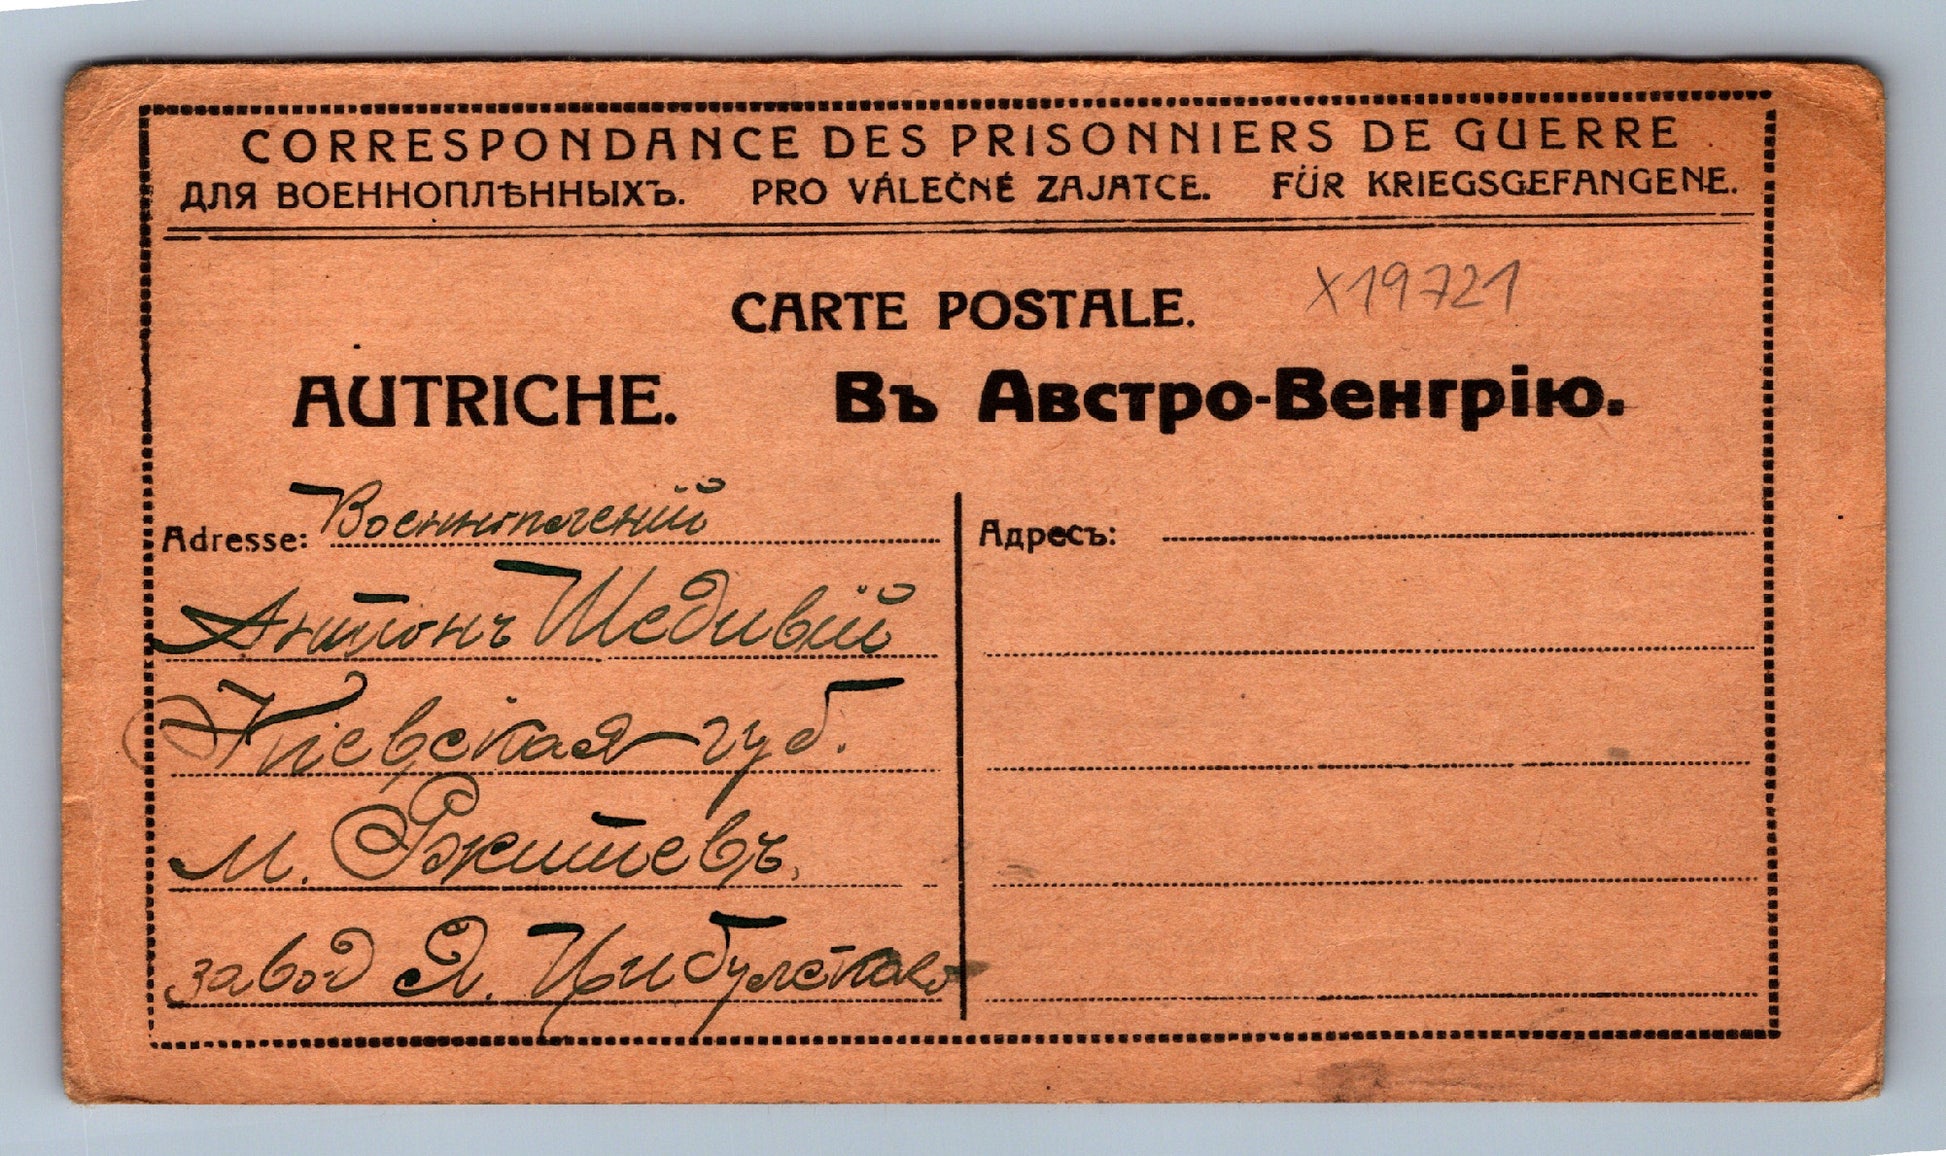 CORRESPONDANCE DES PRISONNIERS DE GUERRE.
ДЛЯ ВОЕННОПЛѢННЫХЪ. PRO VÁLEČNÉ ZAJATCE. FÜR KRIEGSGEFANGENE.
CARTE POSTALE.
X19721
AUTRICHE. Въ Австро-Венгрію.
Adresse: Военнопленій
Антонъ Шедивій
Кіевская губ.
м. Ржитевъ,
завод Я. Цибулскаво
Адресъ: